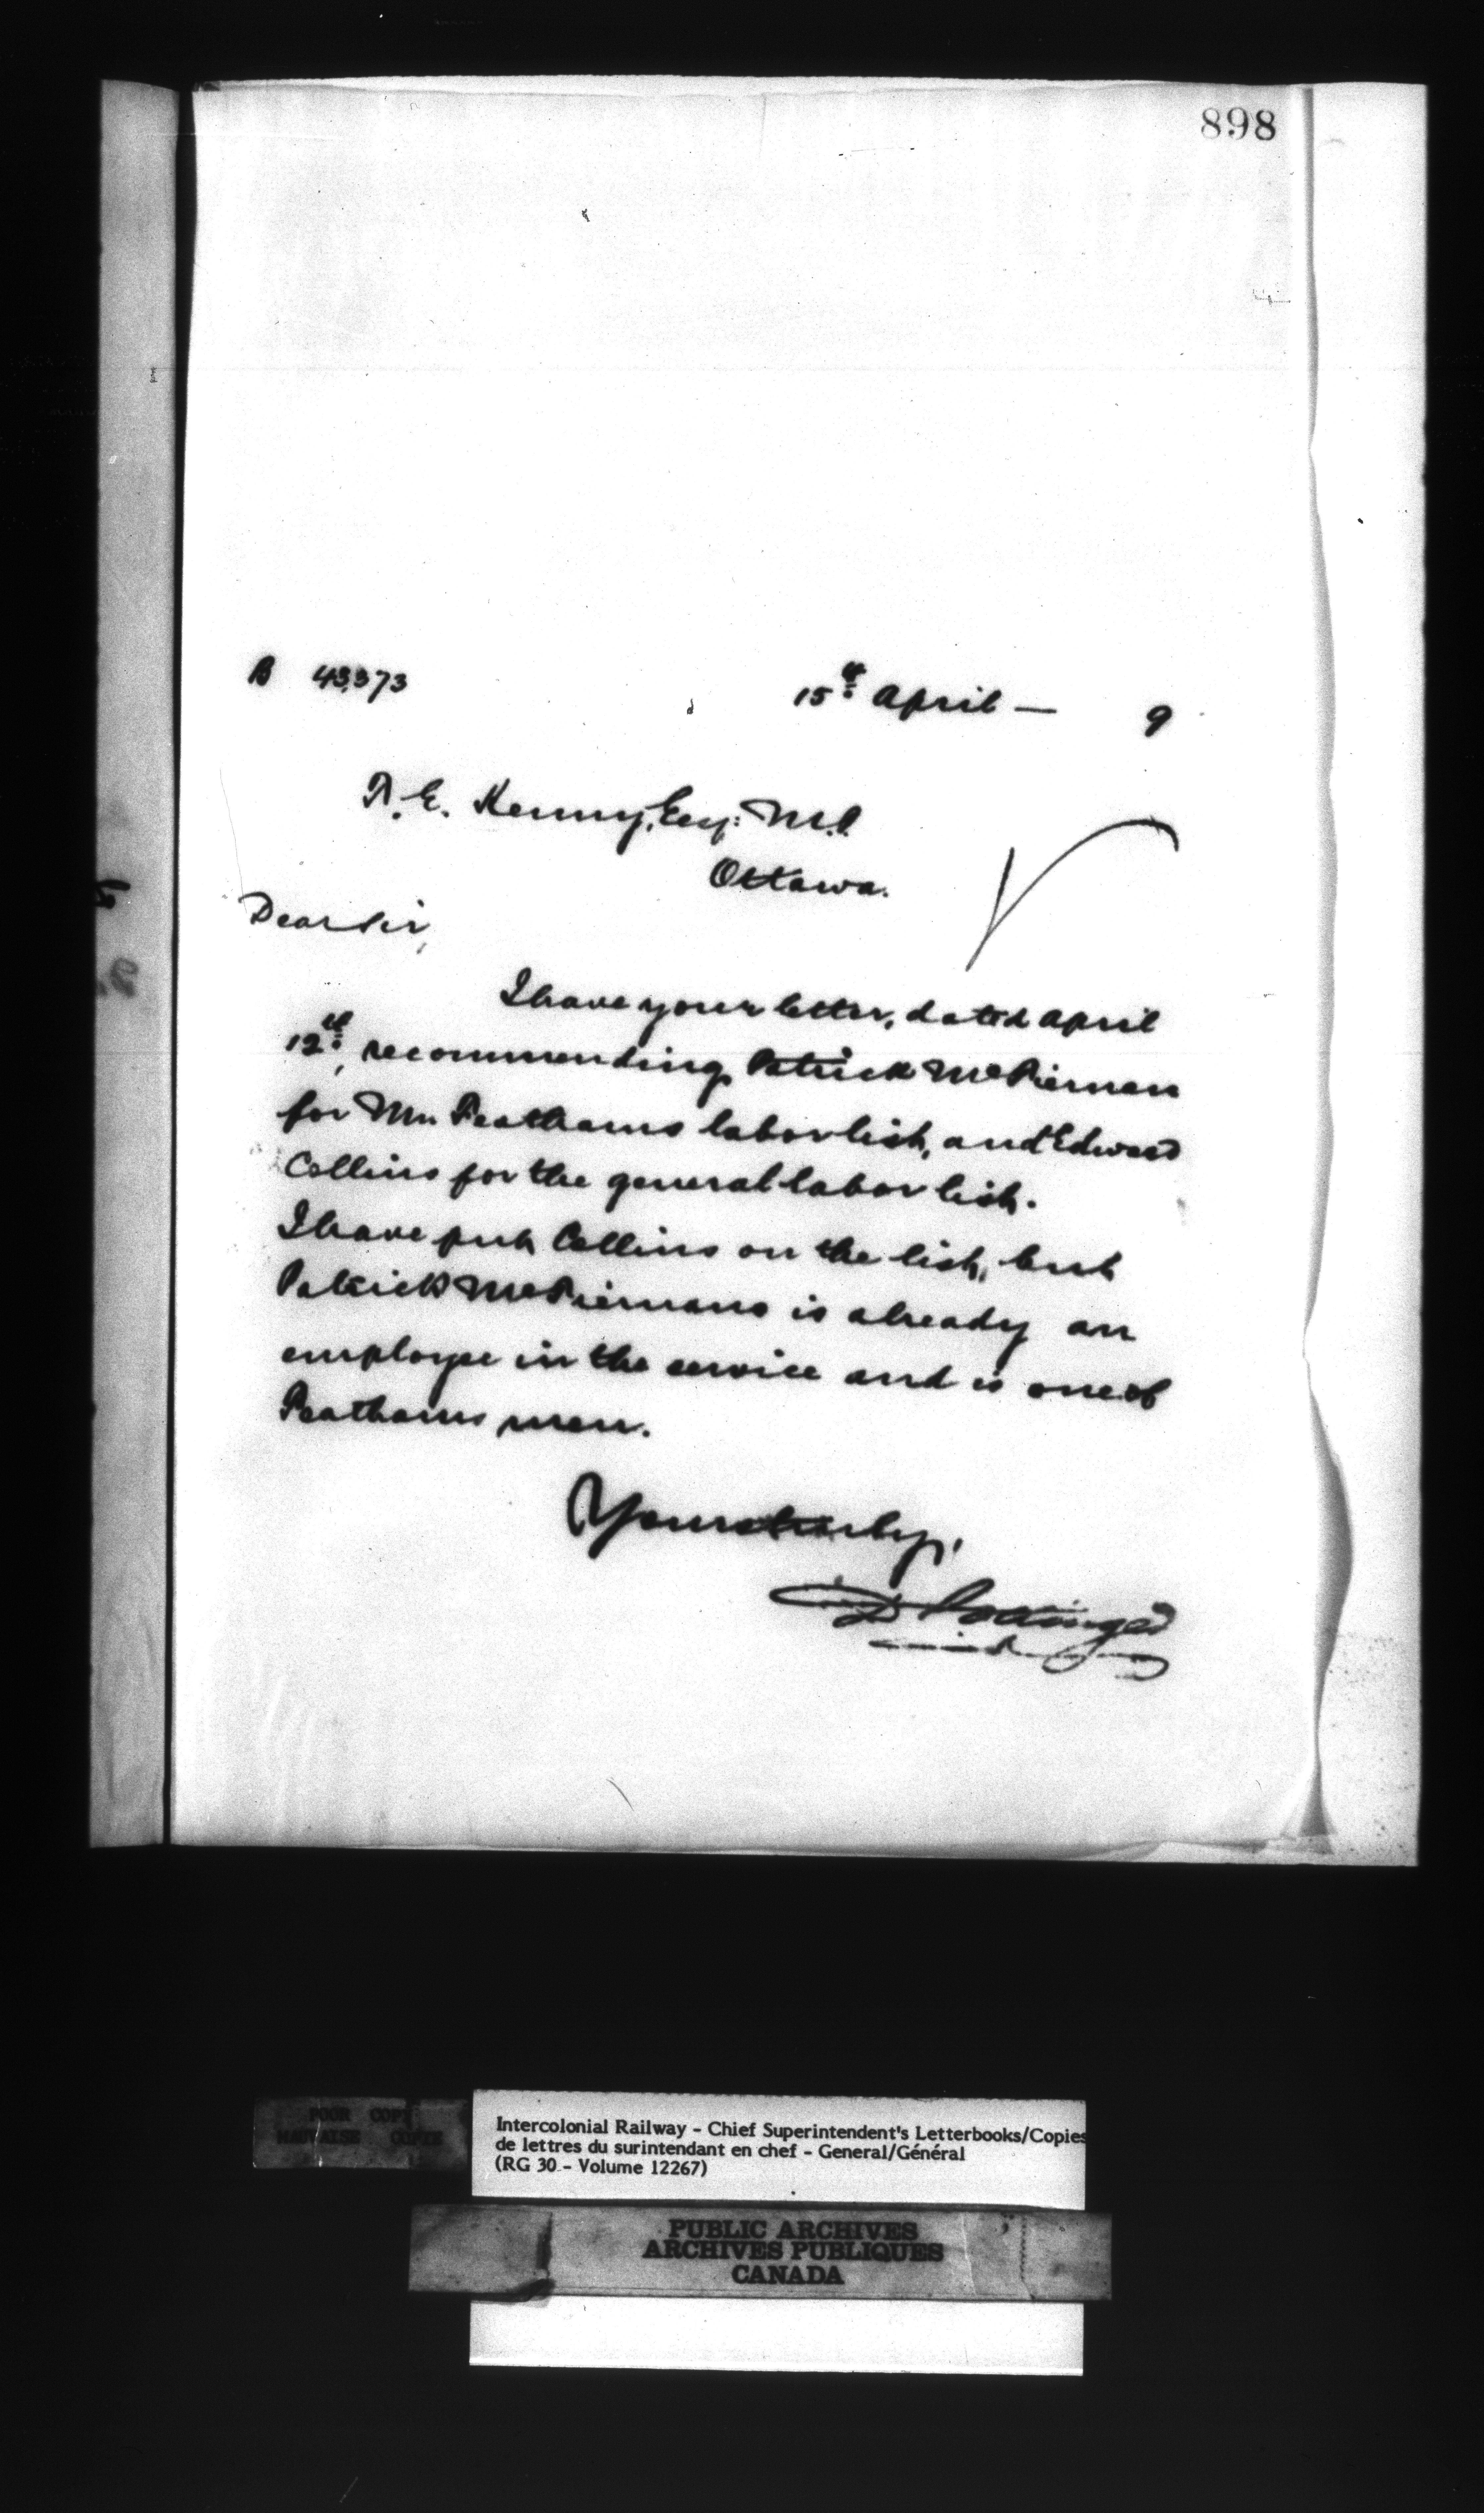 898
B 43,373
15th April — 9
T. E. Kenny, Esq: M.P.
Ottawa.
Dear Sir,
I have your letter, dated April
12th, recommending Patrick McPiernan
for Mr. Peathams labor list, and Edward
Collins for the general labor list.
I have put Collins on the list, but
Patrick McPiernans is already an
employee in the service and is one of
Peathams men.
Yours truly,
D Pottinger
POOR COPY
MAUVAISE COPIE
Intercolonial Railway - Chief Superintendent's Letterbooks/Copies
de lettres du surintendant en chef - General/Général
(RG 30 - Volume 12267)
PUBLIC ARCHIVES
ARCHIVES PUBLIQUES
CANADA